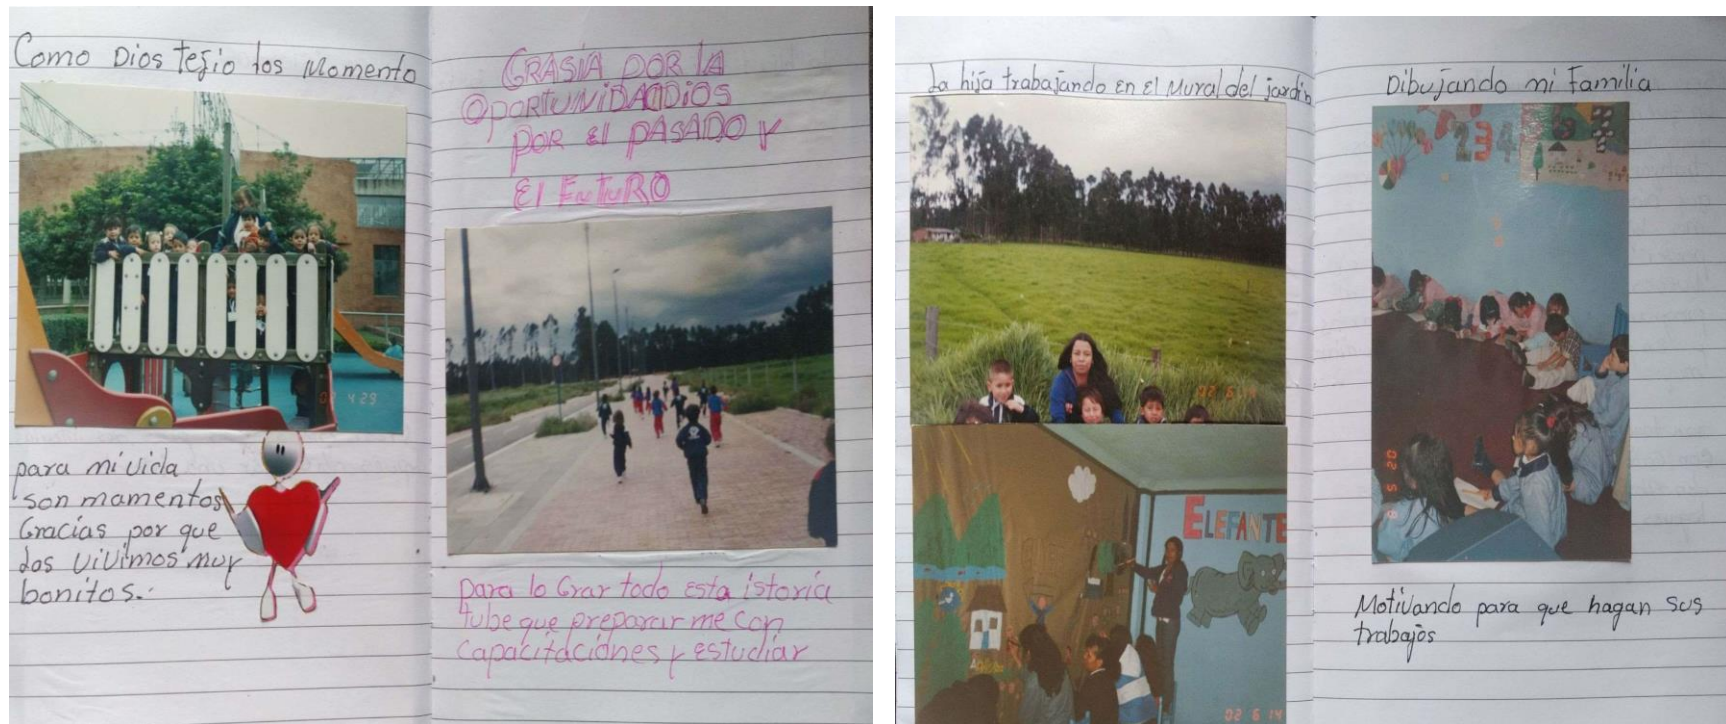 Como Dios tejio los Momento
02 4 29
para mi vida
son mamentos
Gracias por que
los vivimos muy
bonitos..
GRASIA POR LA
OPORTUNIDAD DIOS
POR El PASADO Y
El FuTuRO
para lo Grar todo esta istoria
tube que preparar me con
capacitaciónes y estudiar
La hija trabajando en El Mural del jardín
02 6 14
ELEFANTE
02 6 14
Dibujando mi Familia
234
02 5 8
Motivando para que hagan sus
trabajos